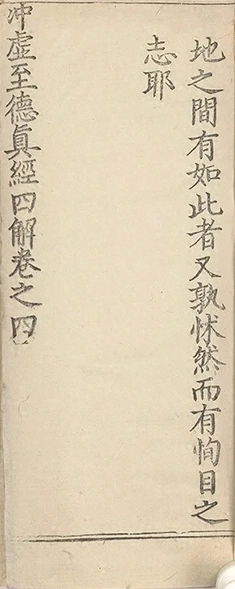 地之間有如此者又孰怵然而有恂目之
志耶
冲虛至德眞經四解卷之四